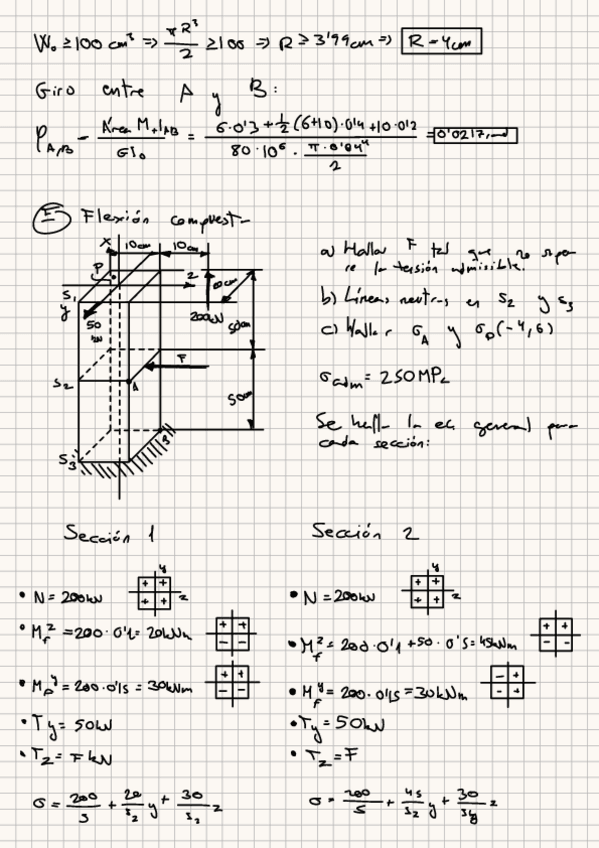 W₀ ≥ 100 cm³ => πR³/2 ≥ 100 => R ≥ 3'99cm => R = 4cm
Giro entre A y B:
φA,B = Área Mt|AB / GI₀ = (6·0'3 + 1/2 (6+10)·0'4 + 10·0'2) / (80·10⁶ · π·0'04⁴/2) = 0'0217 rad
E Flexión compuesta
x 10cm 10cm
P z
S₁ 200kN
y 50 kN 50cm
S₂ A F 50cm
S₃ B
a) Hallar F tal que no supe
re la tensión admisible.
b) Líneas neutras en S₂ y S₃
c) Hallar σA y σP(-4,6)
σadm = 250MPa
Se halla la ec general para
cada sección:
Sección 1
• N = 200kN + + + + y z
• Mfᶻ = 200·0'1 = 20kNm + + - -
• Mfʸ = 200·0'15 = 30kNm
• Ty = 50kN
• Tz = F kN
σ = 200/S + 20/Iz y + 30/I z
Sección 2
• N = 200kN + + + + y z
• Mfᶻ = 200·0'1 + 50·0'5 = 45kNm + + - -
• Mfʸ = 200·0'15 = 30kNm - + - +
• Ty = 50kN
• Tz = F
σ = 200/S + 45/Iz y + 30/Iy z